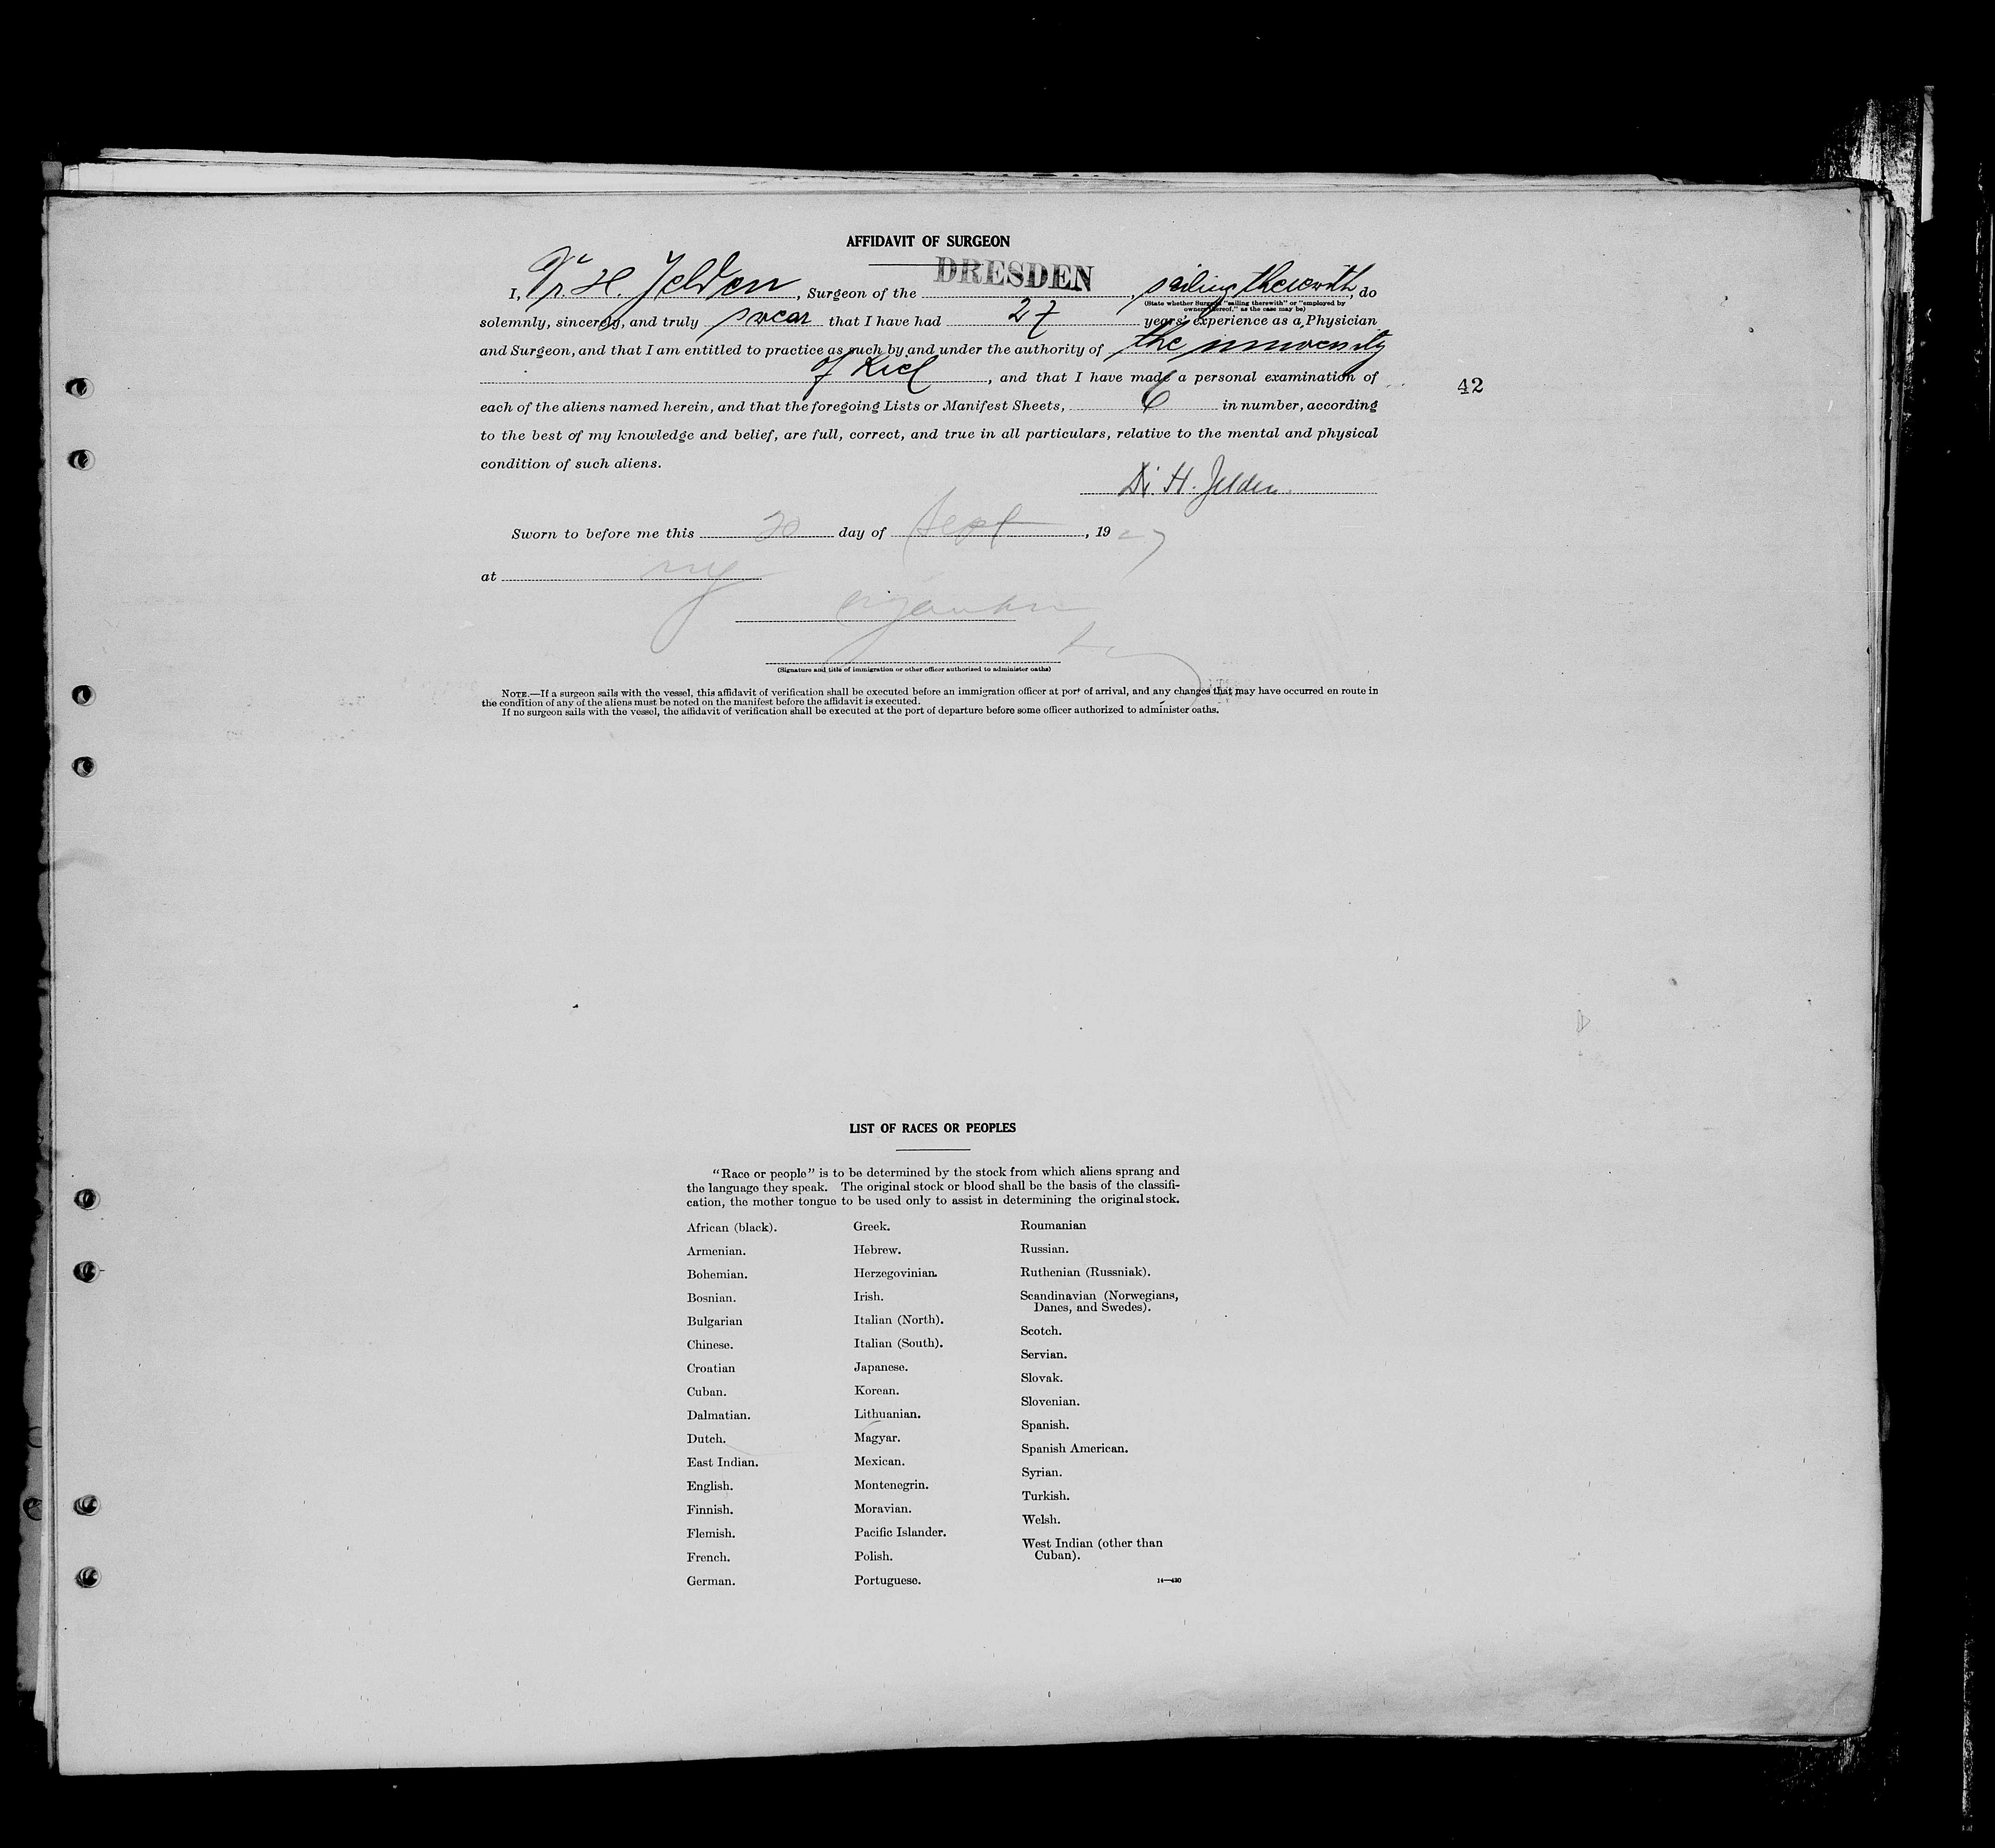 AFFIDAVIT OF SURGEON
I, Dr. H. Jelden, Surgeon of the DRESDEN, sailing therewith, do
(State whether Surgeon "sailing therewith" or "employed by
owners thereof," as the case may be)
solemnly, sincerely, and truly swear that I have had 27 years' experience as a Physician
and Surgeon, and that I am entitled to practice as such by and under the authority of the university
of Kiel, and that I have made a personal examination of
42
each of the aliens named herein, and that the foregoing Lists or Manifest Sheets, 6 in number, according
to the best of my knowledge and belief, are full, correct, and true in all particulars, relative to the mental and physical
condition of such aliens.
Dr. H. Jelden.
Sworn to before me this 20 day of Sept, 1927
at ny
(Signature and title of immigration or other officer authorized to administer oaths)
NOTE.—If a surgeon sails with the vessel, this affidavit of verification shall be executed before an immigration officer at port of arrival, and any changes that may have occurred en route in
the condition of any of the aliens must be noted on the manifest before the affidavit is executed.
If no surgeon sails with the vessel, the affidavit of verification shall be executed at the port of departure before some officer authorized to administer oaths.
LIST OF RACES OR PEOPLES
"Race or people" is to be determined by the stock from which aliens sprang and
the language they speak. The original stock or blood shall be the basis of the classifi-
cation, the mother tongue to be used only to assist in determining the original stock.
African (black).
Armenian.
Bohemian.
Bosnian.
Bulgarian
Chinese.
Croatian
Cuban.
Dalmatian.
Dutch.
East Indian.
English.
Finnish.
Flemish.
French.
German.
Greek.
Hebrew.
Herzegovinian.
Irish.
Italian (North).
Italian (South).
Japanese.
Korean.
Lithuanian.
Magyar.
Mexican.
Montenegrin.
Moravian.
Pacific Islander.
Polish.
Portuguese.
Roumanian
Russian.
Ruthenian (Russniak).
Scandinavian (Norwegians,
Danes, and Swedes).
Scotch.
Servian.
Slovak.
Slovenian.
Spanish.
Spanish American.
Syrian.
Turkish.
Welsh.
West Indian (other than
Cuban).
14—430